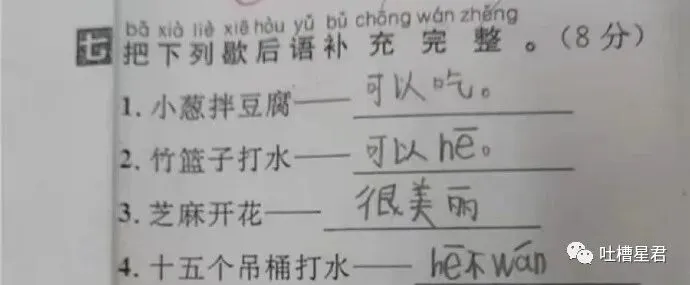 bǎ xià liè xiē hòu yǔ bǔ chōng wán zhěng
七 把下列歇后语补充完整。(8分)
1. 小葱拌豆腐——可以吃。
2. 竹篮子打水——可以hē。
3. 芝麻开花——很美丽
4. 十五个吊桶打水——hē不wán
吐槽星君